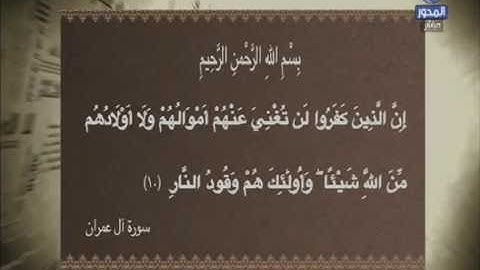 المحور
مباشر
بِسْمِ اللهِ الرَّحْمٰنِ الرَّحِيمِ
إِنَّ الَّذِينَ كَفَرُوا لَن تُغْنِيَ عَنْهُمْ أَمْوَالُهُمْ وَلَا أَوْلَادُهُم
مِّنَ اللَّهِ شَيْئًا ۖ وَأُولَٰئِكَ هُمْ وَقُودُ النَّارِ (١٠)
سورة آل عمران